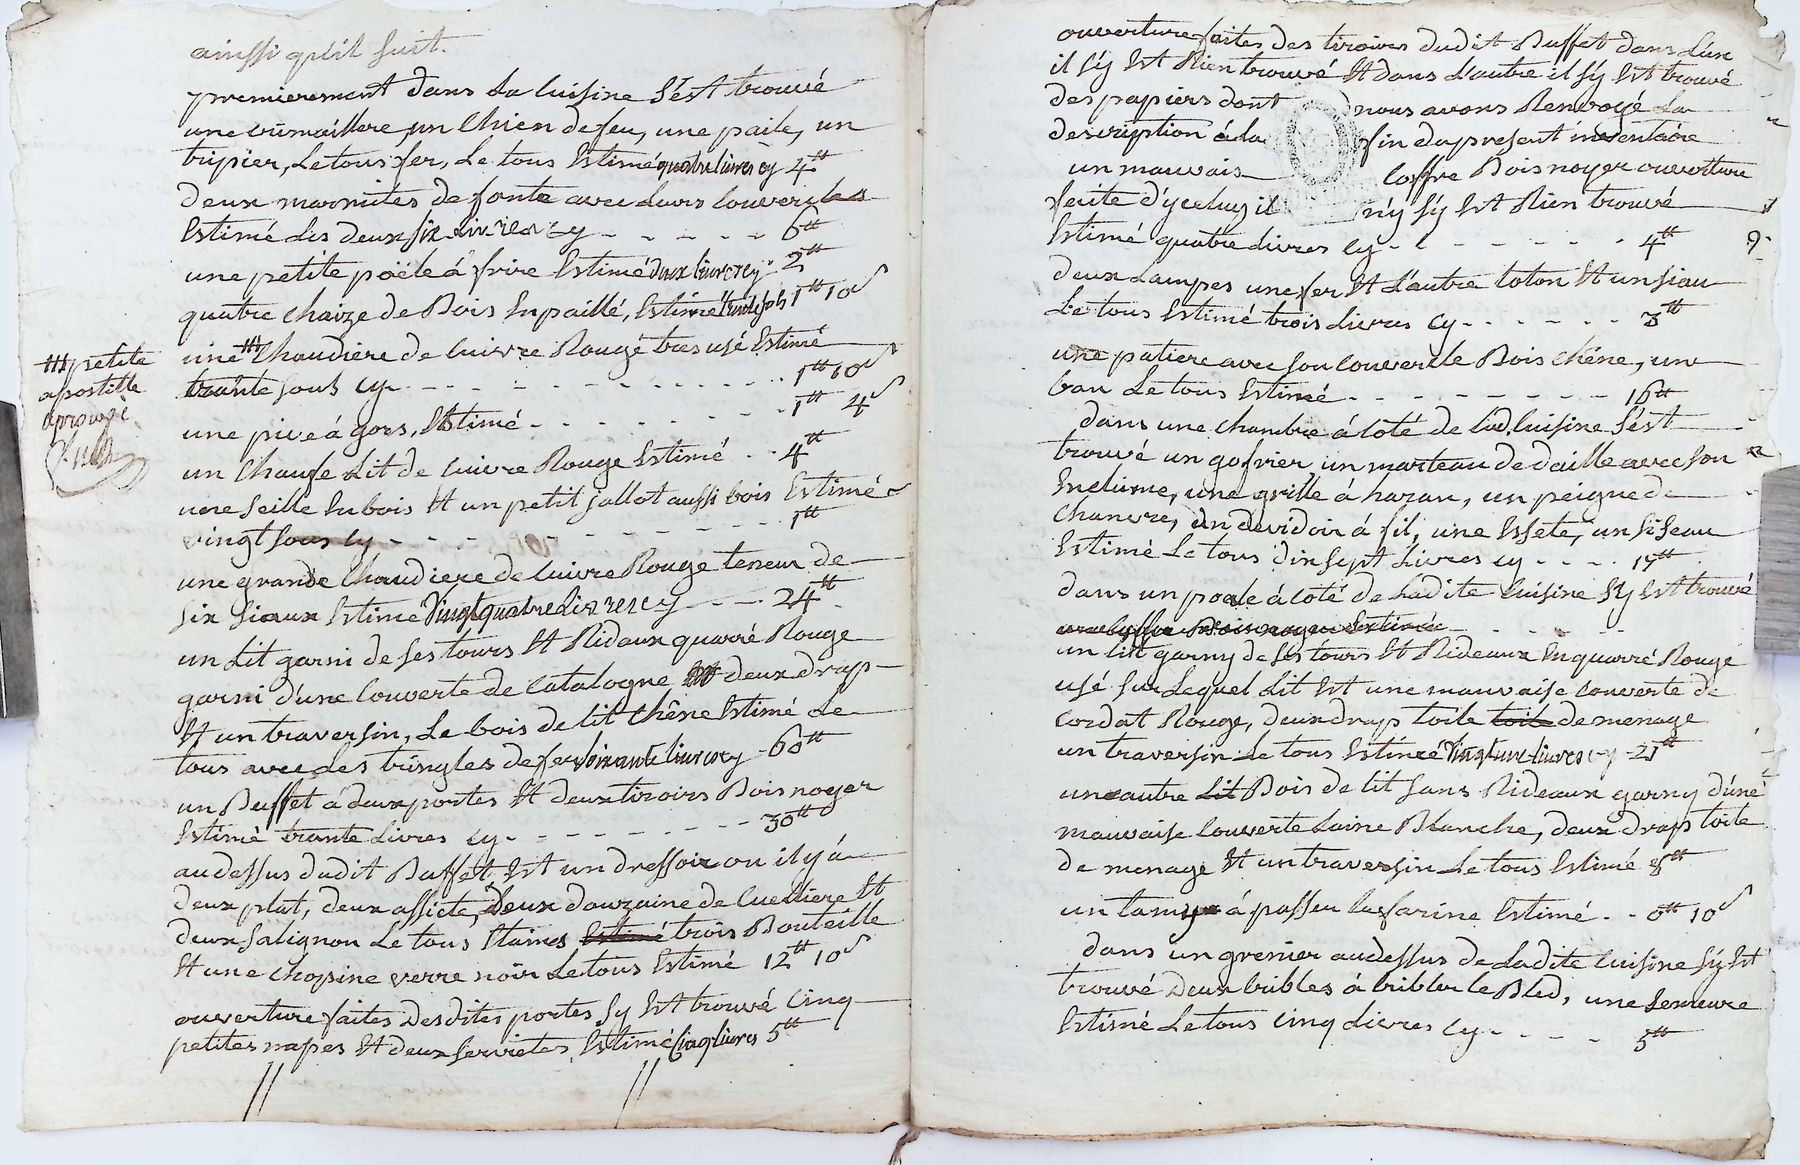 ainssi qu'il suit.
premierement dans la Cuisine s'est trouvé
une crimaillere, un Chien de feu, une paile, un
tripier, Le tous fer, Le tous Estimé quatre livres cy 4tt
deux marmites de fonte avec leurs Couvercles
Estimé Les deux six Livres cy - - - - - 6tt
une petite poële á frire Estimé deux livres cy 2tt
quatre Chaize de Bois Enpaillé, Estimé trente sols 1tt 10s
une ttt Chaudiere de Cuivre Rouge tres usé Estimé
trante sous cy - - - - - - - - 1tt 10s
ttt petite
apostille
aprouvé
une pive á gors, Estimé - - - - - - 1tt 4s
un Chaufe Lit de Cuivre Rouge Estimé - - 4tt
une Seille En bois Et un petit sallot aussi bois Estimé
vingt sous cy - - - - - - - 1tt
une grande Chaudiere de Cuivre Rouge teneur de
six siaux Estimé vingt quatre Livres cy - - - 24tt
un Lit garni de ses tours Et Ridaux quarré Rouge
garni d'une Couverte de Catalogne Et deux drap
Et un traversin, Le bois de lit Chêne Estimé Le
tous avec des tringles de fer soixante livres cy - 60tt
un Buffet a deux portes Et deux tiroirs Bois noyer
Estimé trante Livres cy - - - - - - - 30tt
au dessus du dit Buffet Est un dressoir ou il y á
deux plat, deux assiete, Deux douzaine de Cuelliere Et
deux salignon Le tous Etaines Estimé trois Bouteille
Et une Chopine verre noir Le tous Estimé 12tt 10s
ouverture faites Des dites portes s'y Est trouvé Cinq
petites napes Et deux serviettes, Estimé Cinq livres 5tt
ouverture faites des tiroires du dit Buffet dans L'un
il s'y Est Rien trouvé Et dans L'autre il s'y Est trouvé
des papiers dont nous avons Renvoyé La
description á la fin du present inventaire
un mauvais Coffre Bois noyer ouvertture
feite d'yceluy il n'y s'y Est Rien trouvé
Estimé quatre Livres cy - - - - - - 4tt
deux Lampes une fer Et L'autre loton Et un siau
Le tous Estimé trois Livres cy - - - - - - 3tt
une patiere avec son Couvercle Bois Chêne, un
ban Le tous Estimé - - - - - - - - 16tt
dans une Chambre á Coté de lad. Cuisine s'est
trouvé un gofrier un marteau de daille avec son
Enclume, une grille á haran, un peigne de
Chanvre, un devidoir á fil, une Essete, un siseau
Estimé Le tous dix sept Livres cy - - - - 17tt
dans un poele á Coté de La dite Cuisine s'y Est trouvé
un Coffre Bois noyer Estimé
un lit garny de ses tours Et Rideaux En quarré Rouge
usé sur Lequel Lit Est une mauvaise Couverte de
Cordat Rouge, deux draps toile toile de menage
un traversin Le tous Estimé vingt une livres cy - 21tt
un autre Lit Bois de lit sans Rideaux garny d'une
mauvaise Couverte Laine Blanche, deux draps toile
de menage Et un traversin Le tous Estimé 8tt
un tamy á passer La farine Estimé - - 0tt 10s
dans un grenier au dessus de La dite Cuisine s'y Est
trouvé Deux Cribles á Cribler le Bled, une semeure
Estimé Le tous Cinq Livres cy - - - - 5tt